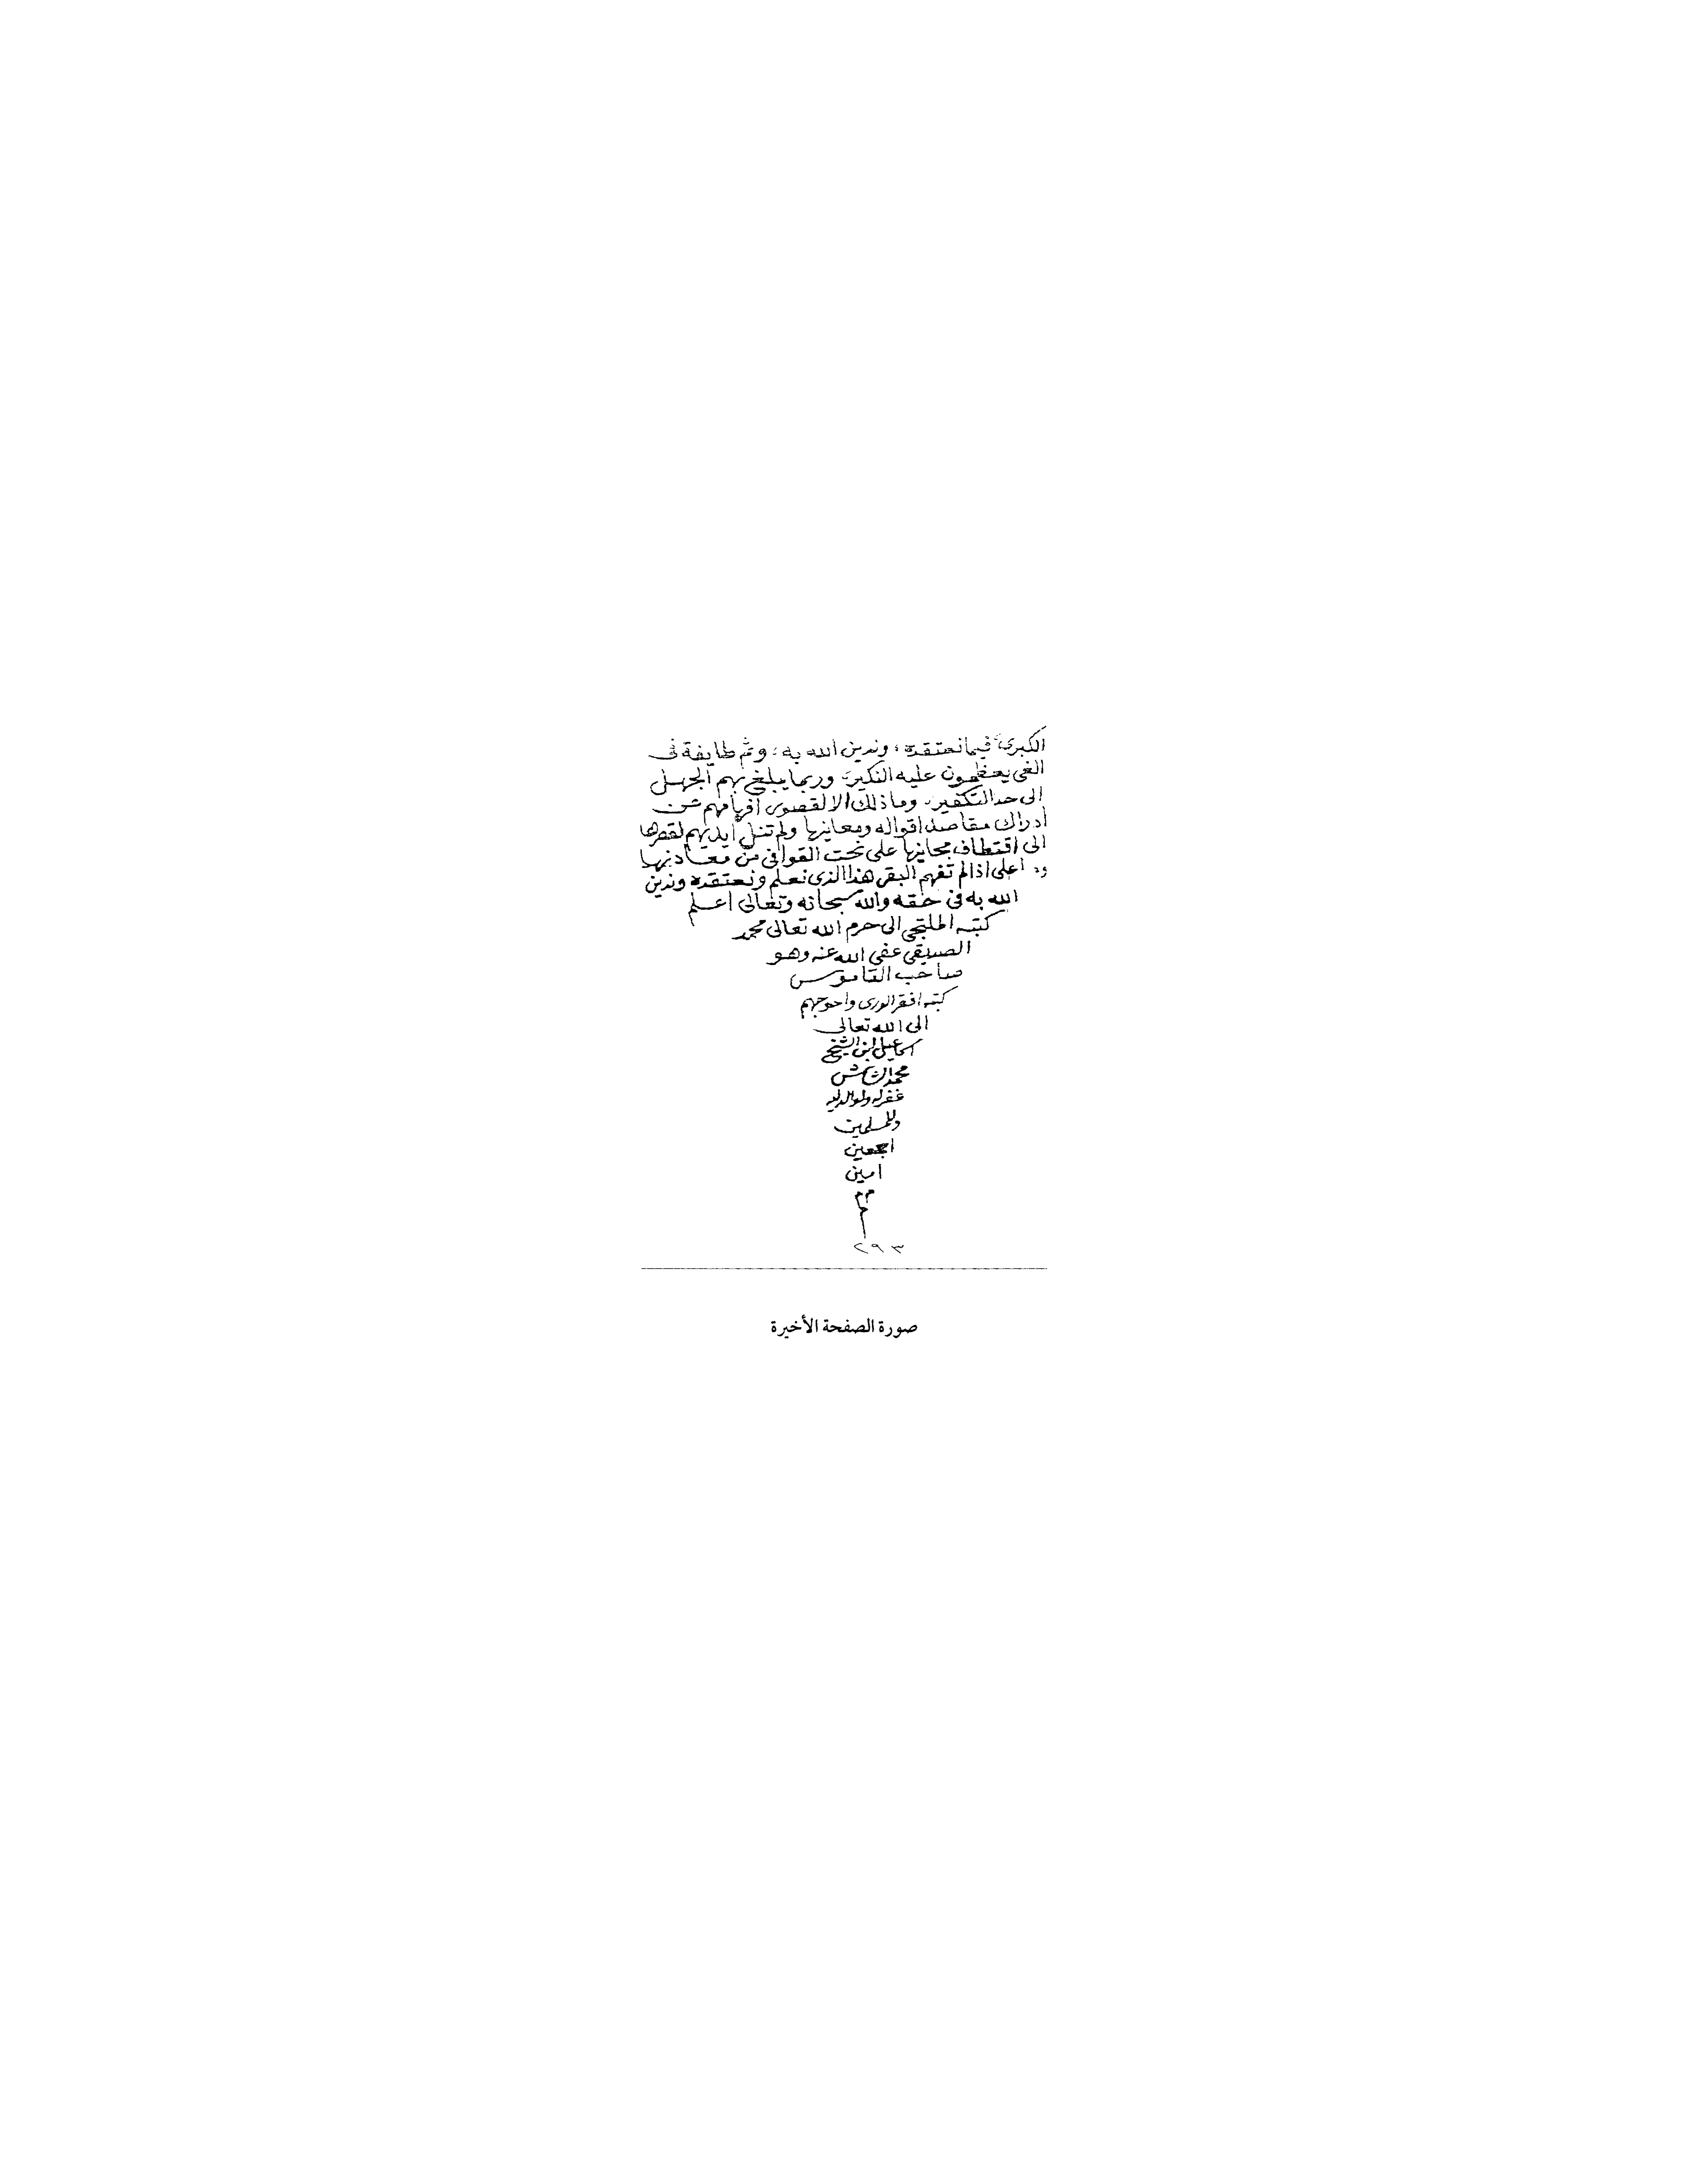 الكبرى فيما نعتقده، وندين الله به، وثم طايفة فى
الغى يعظمون عليه النكير، وربما يبلغ بهم الجهل
الى حد التكفير، وما ذلك الا لقصور افهامهم عن
ادراك مقاصد اقواله ومعانيها ولم تنل ايديهم لقصرها
الى اقتطاف مجانيها على نحت القوافى من معادنها
وما على اذا لم تفهم البقر هذا الذى نعلم ونعتقده وندين
الله به فى حقه والله سبحانه وتعالى اعلم
كتبه الملتجى الى حرم الله تعالى محمد
الصديقى عفى الله عنه وهو
صاحب القاموس
كتبه افقر الورى واحوجهم
الى الله تعالى
اسماعيل ابن الشيخ
محمد
غفر له ولوالديه
وللمسلمين
اجمعين
امين
٢٩٣
صورة الصفحة الأخيرة